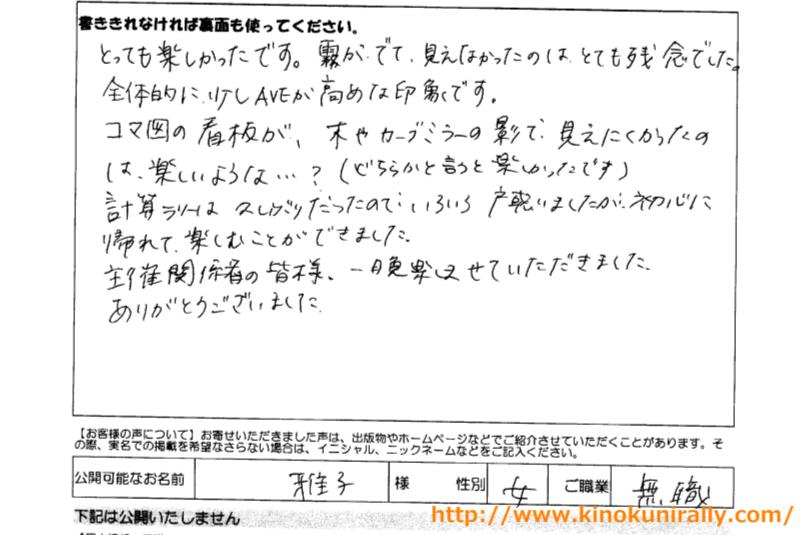 書ききれなければ裏面も使ってください。
とっても楽しかったです。霧がでて、見えなかったのは、とても残念でした。
全体的に、少しAVEが高めな印象です。
コマ図の看板が、木やカーブミラーの影で、見えにくかったの
は、楽しいような…？(どちらかと言うと楽しかったです)
計算ラリーは久しぶりだったので、いろいろ戸惑いましたが、初心に
帰れて、楽しむことができました。
主催関係者の皆様、一晩楽しませていただきました
ありがとうございました
【お客様の声について】お寄せいただきました声は、出版物やホームページなどでご紹介させていただくことがあります。そ
の際、実名での掲載を希望なさらない場合は、イニシャル、ニックネームなどをご記入ください。
公開可能なお名前 雅子 様 性別 女 ご職業 無職
下記は公開いたしません
http://www.kinokunirally.com/